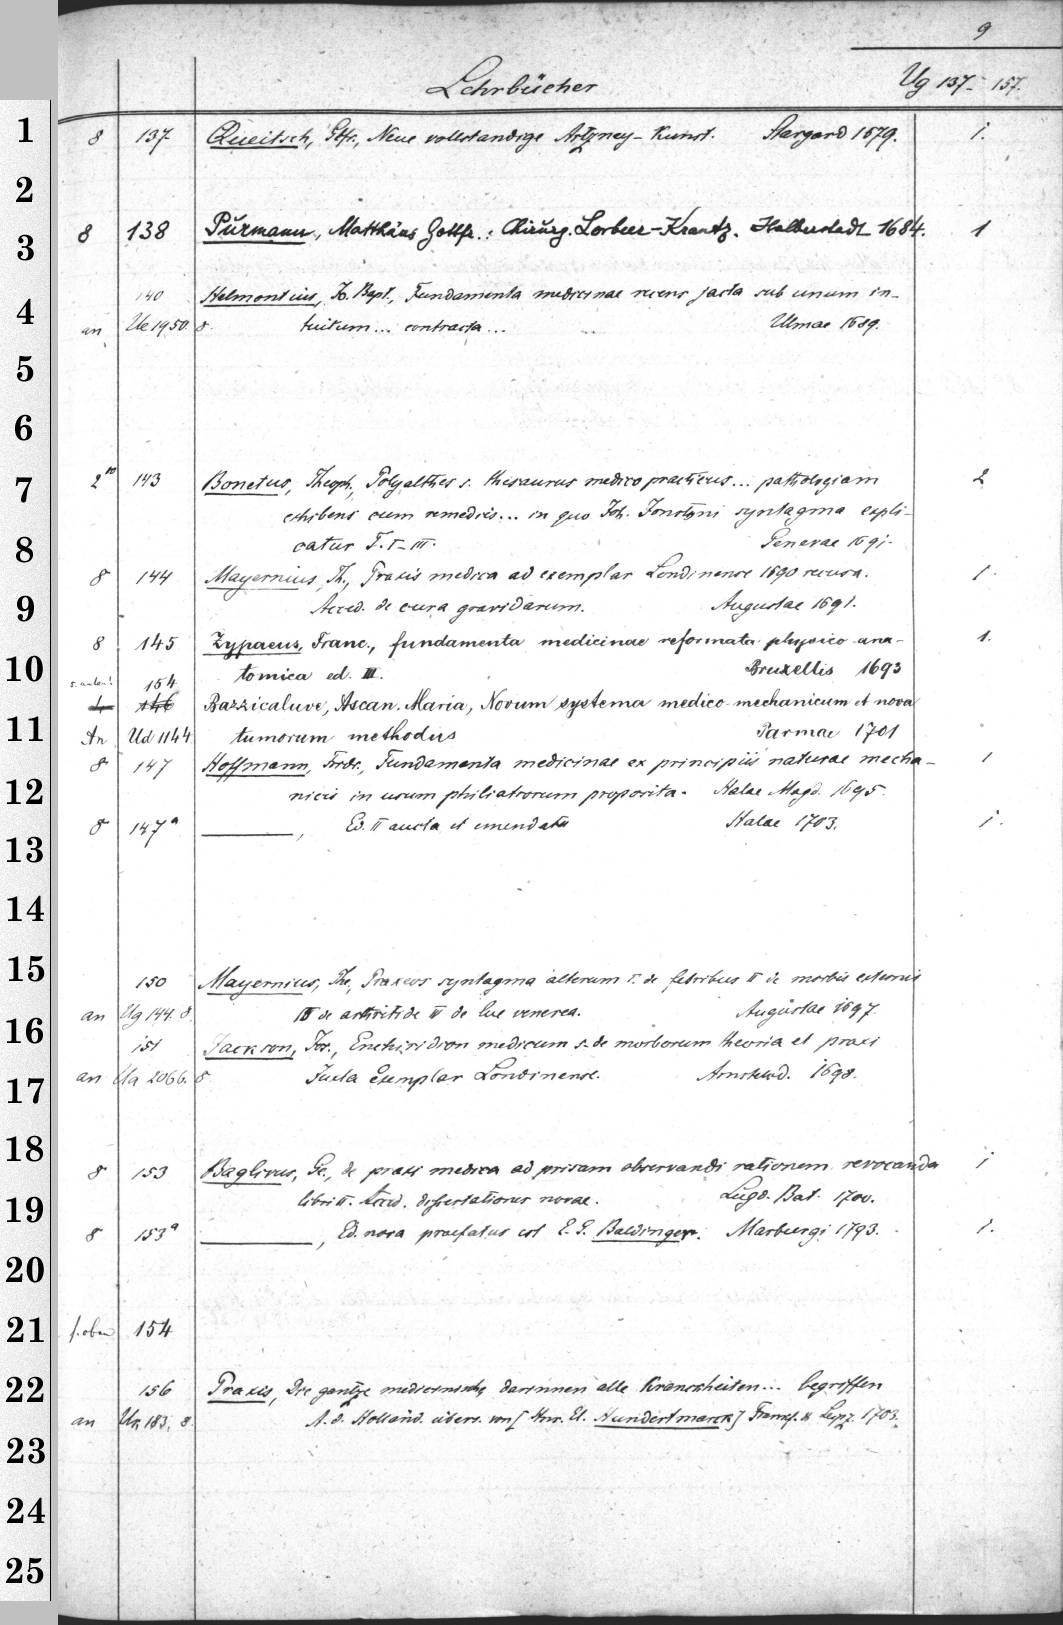 9
Lehrbücher Ug 137-157.
1 8 137 Queitsch, Gtfr., Neue vollständige Artzney-Kunst. Stargard 1679. 1.
2
3 8 138 Purmann, Matthäus Gottfr.: Chirurg. Lorbeer-Krantz. Halberstadt 1684. 1
140 Helmontius, Jo. Bapt., Fundamenta medicinae recens jacta sub unum in-
4 an Ue 1950. 8. tuitum... contracta... Ulmae 1689.
5
6
7 2° 143 Bonetus, Theoph., Polyalthes s. thesaurus medico practicus... pathologiam 2
exhibens cum remediis... in quo Joh. Jonstoni syntagma expli-
8 catur T. I-III. Genevae 1691.
8 144 Mayernius, Th., Praxis medica ad exemplar Londinense 1690 recusa. 1.
9 Acced. de cura gravidarum. Augustae 1691.
8 145 Zypaeus, Franc., fundamenta medicinae reformata physico-ana- 1.
10 tomica ed. III. Bruxellis 1693
s. unten! 154
4 146 Bazzicaluve, Ascan. Maria, Novum systema medico-mechanicum et nova
11 An Ud 1144 tumorum methodus Parmae 1701
8 147 Hoffmann, Frdr., Fundamenta medicinae ex principiis naturae mecha- 1
12 nicis in usum philiatrorum proposita. Halae Magd. 1695.
8 147a ———, Ed. II aucta et emendata Halae 1703. 1.
13
14
15 150 Mayernius, Th., Praxeos syntagma alterum I. de febribus II de morbis externis
16 an Ug 144. 8. III de arthritide IV de lue venerea. Augustae 1697.
151 Jackson, Jos., Enchiridion medicum s. de morborum theoria et praxi
17 an Ua 2066. 8. Juxta Exemplar Londinense. Amstelod. 1698.
18 8 153 Baglivus, Ge., de praxi medica ad priscam observandi rationem revocanda 1
19 libri II. Acced. dissertationes novae. Lugd. Bat. 1700.
8 153a ———, Ed. nova praefatus est E. G. Baldinger. Marburgi 1793. 1.
20
21 s. oben 154
22 156 Praxis, Die gantze medicinische darinnen alle Kranckheiten... begriffen
an Un 183. 8. A. d. Holländ. übers. von [Hnr. El. Hundertmarck] Francf. u. Leipz. 1703.
23
24
25